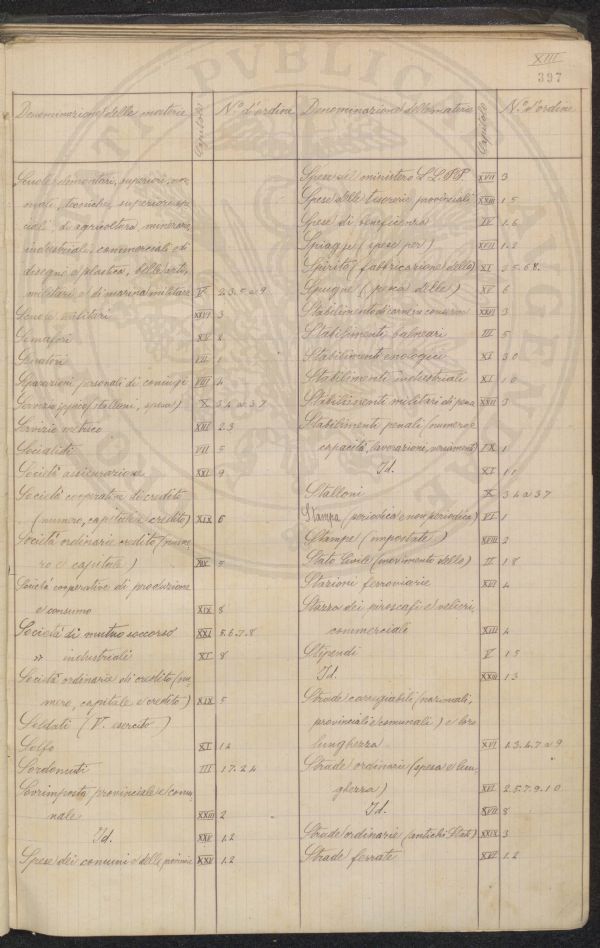 XIII
397
Denominazione delle materie Capitolo N.º d'ordine
Scuole elementari, superiori, nor-
mali, tecniche, superiori spe-
ciali, di agricoltura, minerarie,
industriale, commerciali e di
disegno e plastica, belle arti,
militari e di marina militare V 2.3.5 a 9
Scuole militari XXVI 3
Semafori XV
Senatori VII 1
Separazioni personali di coniugi VIII 4
Servizio ippico (stalloni, spesa) X 34 a 37
Servizio metrico XIII 2.3
Socialisti VII 5
Società assicurazione XXI 9
Società cooperative di credito
(numero, capitale e credito) XIX 6
Società ordinarie credito (nume-
ro e capitale) XIX 5
Società cooperative di produzione
e consumo XIX 8
Società di mutuo soccorso XXI 5.6.7.8
» industriali XI 8
Società ordinarie di credito (nu-
mero, capitale e credito) XIX 5
Soldati (V. esercito)
Solfo XI 12
Sordomuti III 17.24
Sovrimposta provinciale e comu-
nale XXIII 2
Id. XXV 1.2
Spese dei comuni e delle provincie XXV 1.2
Denominazione delle materie Capitolo N.º d'ordine
Spese del ministero LL.PP. XVII 3
Spese delle tesorerie provinciali XXIII 15
Spese di beneficenza IV 1.6
Spiagge (spese per) XVII 1.2
Spirito (fabbricazione dello) XI 2 5.6.8.
Spugne (pesca delle) XV 6
Stabilimento di carne in conserva XXVI 3
Stabilimenti balneari III 5
Stabilimenti enologici XI 30
Stabilimenti industriali XI 10
Stabilimenti militari di pena XXVI 3
Stabilimenti penali (numero e
capacità, lavorazioni, movimenti) IX 1
Id. XI 11
Stalloni X 34 a 37
Stampa (periodica e non periodica) VI 1
Stampe (impostate) XVIII 2
Stato Civile (movimento dello) II 18
Stazioni ferroviarie XVI 4
Stazza dei piroscafi e velieri
commerciali XIII 4
Stipendi V 15
Id. XXIII 13
Strade carreggiabili (nazionali,
provinciali e comunali) e loro
lunghezza XVI 1.3.4.7 a 9
Strade ordinarie (spesa e lun-
ghezza) XVI 2.5.7.9.10
Id. XVII 8
Strade ordinarie (antichi Stati) XXIX 3
Strade ferrate XVI 1.2